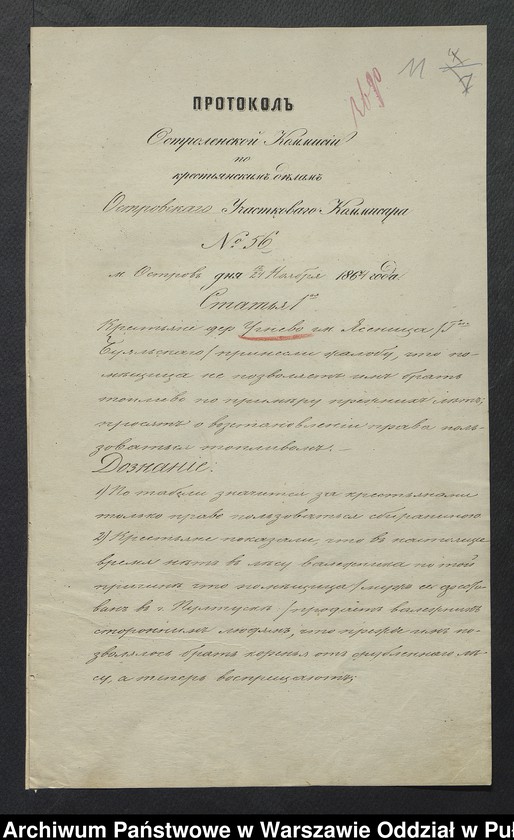 11
ПРОТОКОЛЪ
Остроленской Коммисіи
по
крестьянскимъ дѣламъ
Островскаго Участковаго Коммисара
№ 56
м Островъ дня Ноября 1864 года
Статья 1
Крестьяне дер Угнево гм Ясеница
принесли жалобу, что по-
мѣщица не позволяетъ имъ брать
топливо по примѣру прежнихъ лѣтъ,
просятъ о возстановленіи права поль-
зоваться топливомъ.
Дознаніе:
1) По табели значится за крестьянами
только право пользоваться собираниною
2) Крестьяне показали, что въ настоящее
время нѣтъ въ лѣсу валежника по той
причинѣ что помѣщица /мужъ ея
въ г. Пултускѣ/ продаетъ валежникъ
стороннимъ людямъ, что прежде имъ по-
зволялось брать коренья отъ срубленнаго лѣ-
су, а теперь воспрещаютъ;
Archiwum Państwowe w Warszawie Oddział w Puł